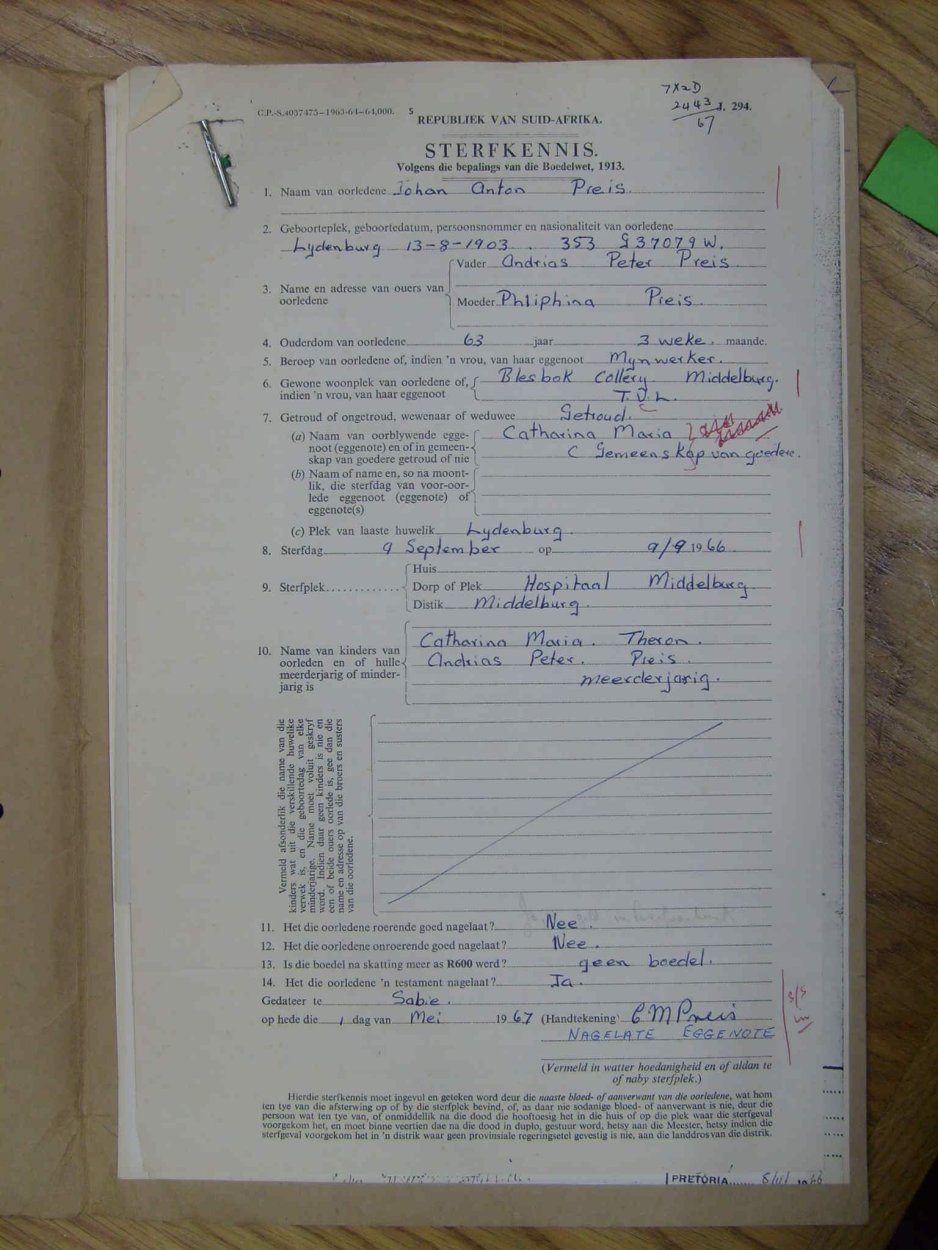 7X2D
C.P.-S.4037475—1963-64—64,000. 5
2443 J. 294.
67
REPUBLIEK VAN SUID-AFRIKA.
STERFKENNIS.
Volgens die bepalings van die Boedelwet, 1913.
1. Naam van oorledene Johan Anton Preis.
2. Geboorteplek, geboortedatum, persoonsnommer en nasionaliteit van oorledene
Lydenburg 13-8-1903. 353 937079 W.
Vader Andrias Peter Preis
3. Name en adresse van ouers van
oorledene
Moeder Phliphina Preis
4. Ouderdom van oorledene 63 jaar 3 weke. maande.
5. Beroep van oorledene of, indien 'n vrou, van haar eggenoot Mynwerker.
6. Gewone woonplek van oorledene of, Blesbok Collery Middelburg.
indien 'n vrou, van haar eggenoot T.V.L.
7. Getroud of ongetroud, wewenaar of weduwee Getroud.
(a) Naam van oorblywende egge- Catharina Maria
noot (eggenote) en of in gemeen- Gemeenskap van goedere.
skap van goedere getroud of nie
(b) Naam of name en, so na moont-
lik, die sterfdag van voor-oor-
lede eggenoot (eggenote) of
eggenote(s)
(c) Plek van laaste huwelik Lydenburg
8. Sterfdag 9 September op 9/9 1966
Huis
9. Sterfplek Dorp of Plek Hospitaal Middelburg
Distik Middelburg.
Catharina Maria. Theron.
10. Name van kinders van
oorleden en of hulle Andrias Peter. Preis.
meerderjarig of minder- meerderjarig.
jarig is
Vermeld afsonderlik die name van die
kinders wat uit die verskillende huwelike
verwek is, en die geboortedag van elke
minderjarige. Name moet voluit geskryf
word. Indien daar geen kinders is nie en
een of beide ouers oorlede is, gee dan die
name en adresse op van die broers en susters
van die oorledene.
11. Het die oorledene roerende goed nagelaat? Nee.
12. Het die oorledene onroerende goed nagelaat? Nee.
13. Is die boedel na skatting meer as R600 werd? geen boedel.
14. Het die oorledene 'n testament nagelaat? Ja.
Gedateer te Sabie.
op hede die 1 dag van Mei 1967 (Handtekening) C M Preis
NAGELATE EGGENOTE
(Vermeld in watter hoedanigheid en of aldan te
of naby sterfplek.)
Hierdie sterfkennis moet ingevul en geteken word deur die naaste bloed- of aanverwant van die oorledene, wat hom
ten tye van die afsterwing op of by die sterfplek bevind, of, as daar nie sodanige bloed- of aanverwant is nie, deur die
persoon wat ten tye van, of onmiddellik na die dood die hooftoesig het in die huis of op die plek waar die sterfgeval
voorgekom het, en moet binne veertien dae na die dood in duplo, gestuur word, hetsy aan die Meester, hetsy indien die
sterfgeval voorgekom het in 'n distrik waar geen provinsiale regeringsetel gevestig is nie, aan die landdros van die distrik.
PRETORIA